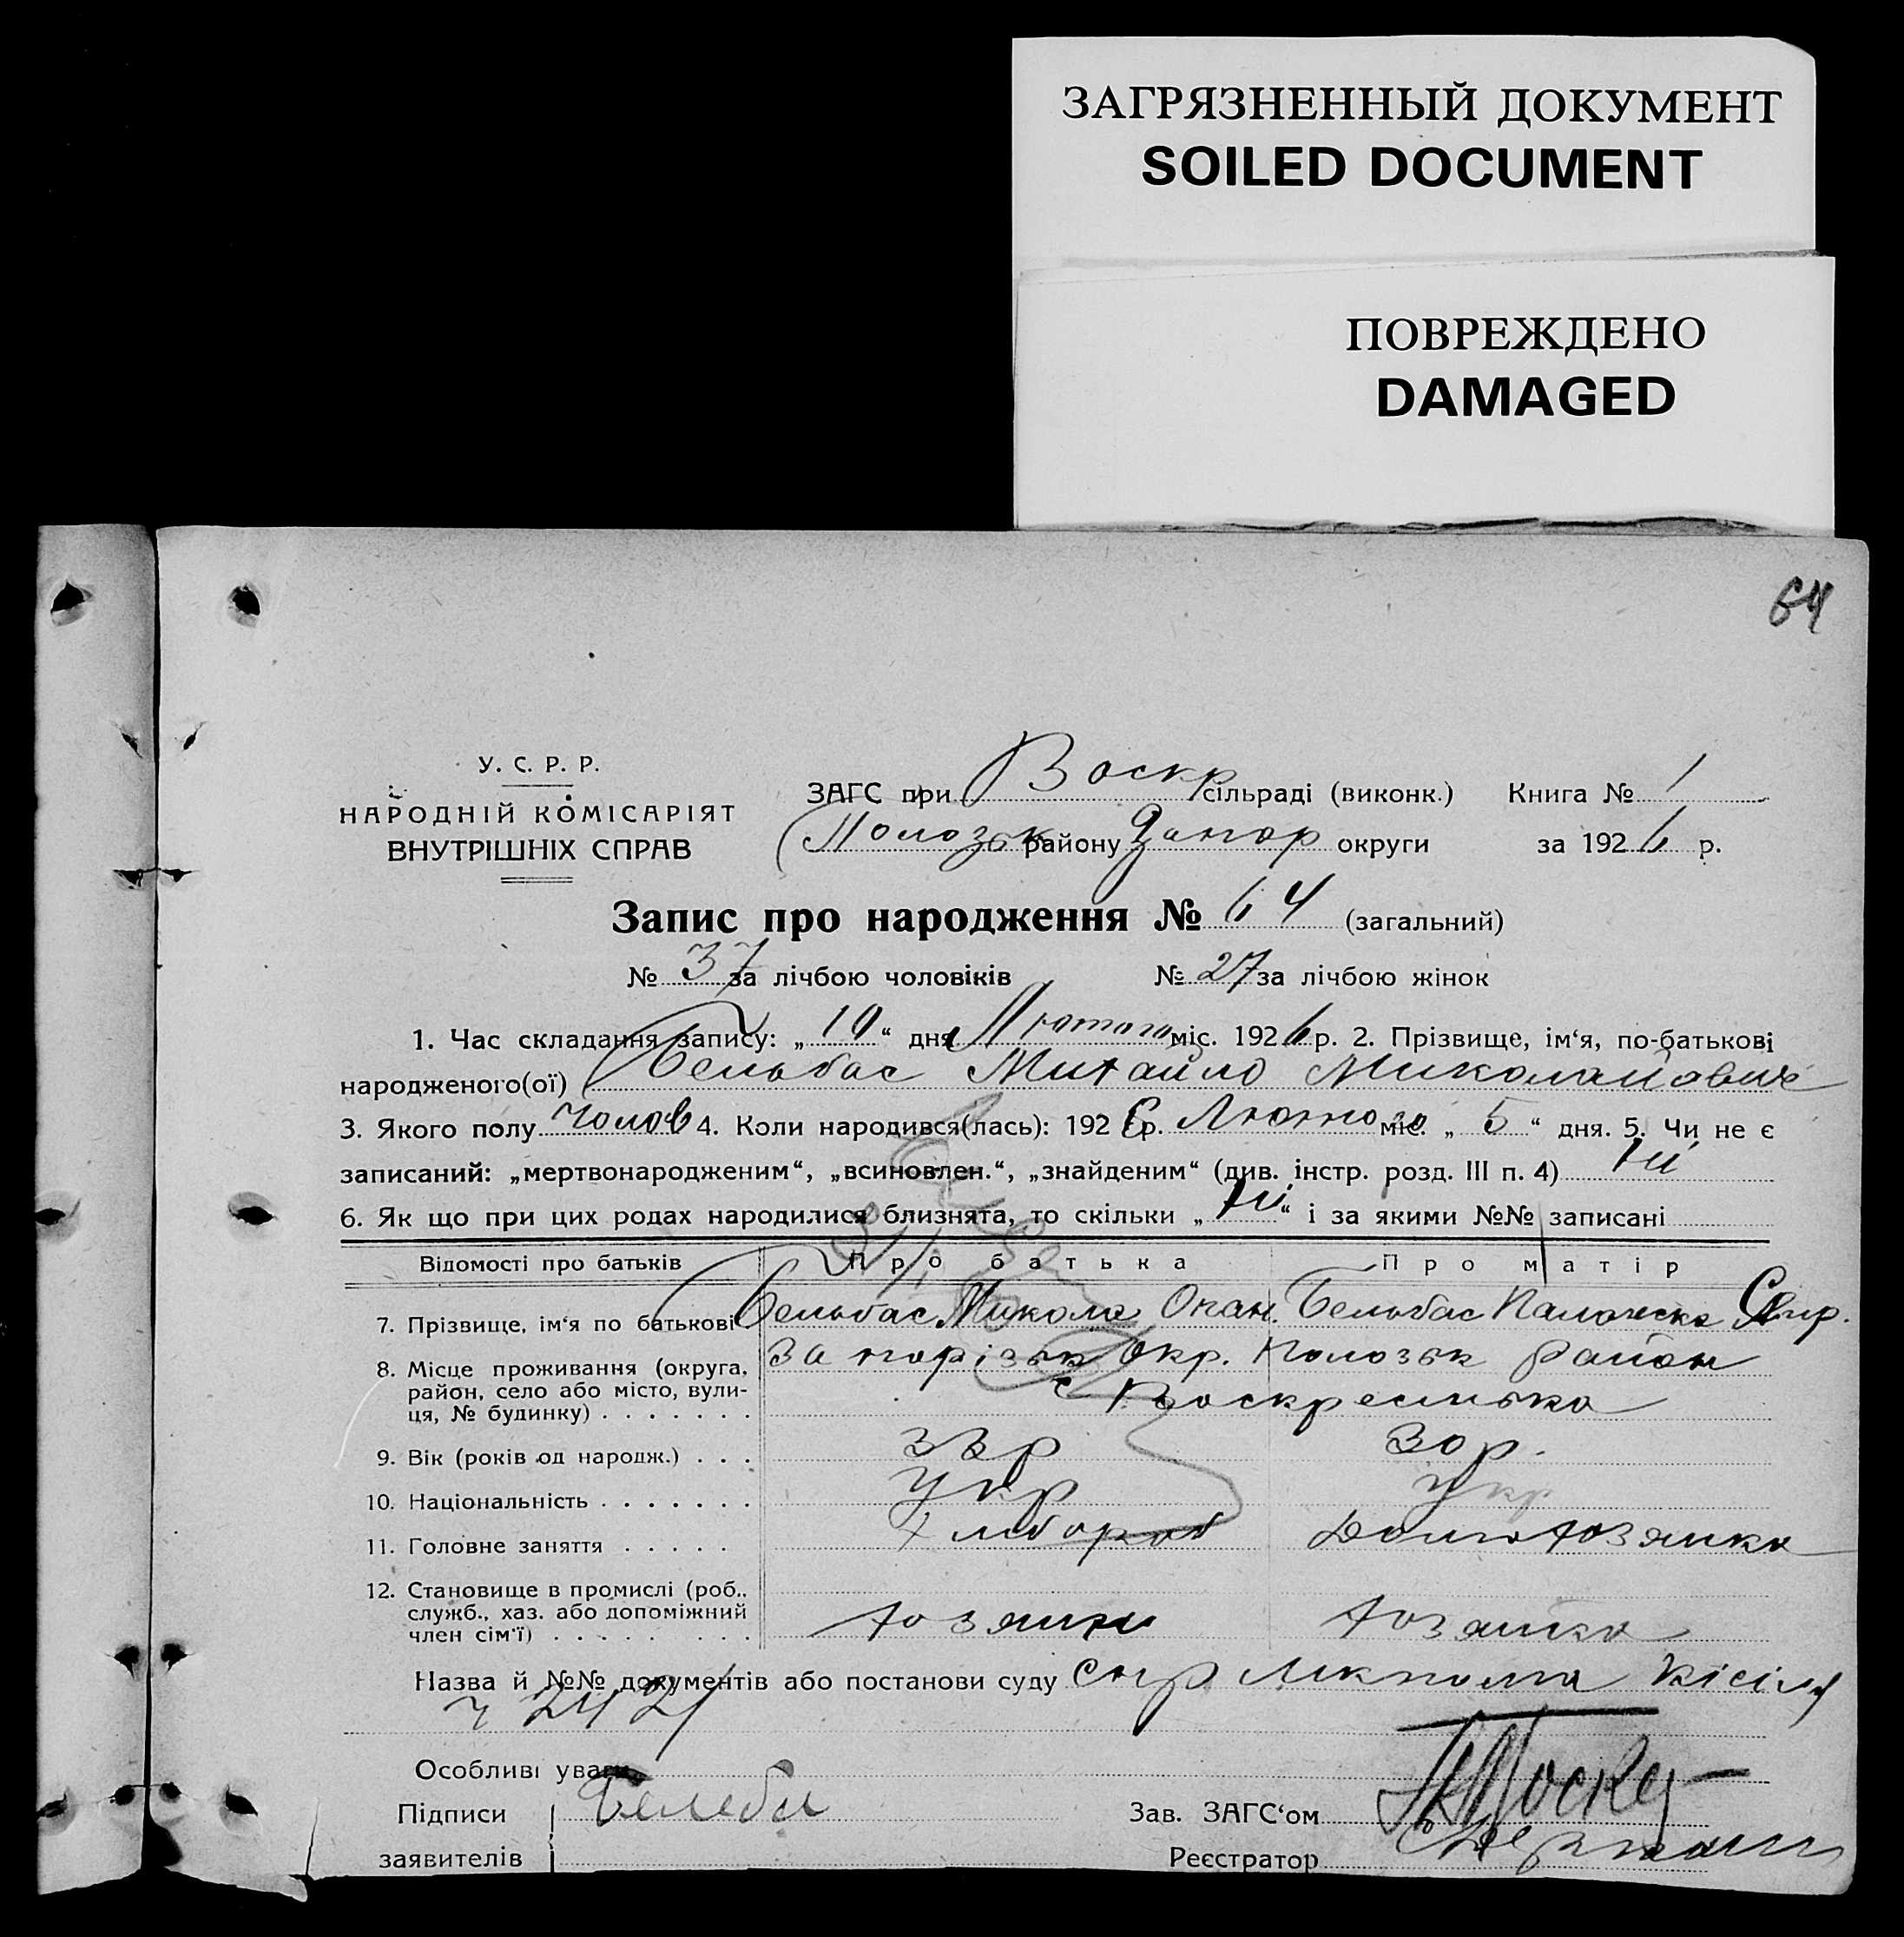 ЗАГРЯЗНЕННЫЙ ДОКУМЕНТ
SOILED DOCUMENT
ПОВРЕЖДЕНО
DAMAGED
64
У. С. Р. Р.
НАРОДНІЙ КОМІСАРІЯТ
ВНУТРІШНІХ СПРАВ
ЗАГС при Воскр сільраді (виконк.) Книга № 1
Полозьк району Запор округи за 1926 р.
Запис про народження № 64 (загальний)
№ 37 за лічбою чоловіків № 27 за лічбою жінок
1. Час складання запису: „10“ дня Лютого міс. 1926 р. 2. Прізвище, ім‘я, по-батькові
народженого(ої) Бельбас Михайло Миколайович
3. Якого полу Чолов 4. Коли народився(лась): 1926 р. Лютого міс. „5“ дня. 5. Чи не є
записаний: „мертвонародженим“, „всиновлен.“, „знайденим“ (див. інстр. розд. III п. 4) Ні
6. Як що при цих родах народилися близнята, то скільки „Ні“ і за якими №№ записані
Відомості про батьків Про батька Про матір
7. Прізвище, ім‘я по батькові Бельбас Микола Опан. Бельбас
8. Місце проживання (округа, район, село або місто, вулиця, № будинку) . . . . . . . Запорізьк Окр. Полозьк район
с Воскресенька
9. Вік (років од народж.) . . . 33р 30р.
10. Національність . . . . . . . Укр Укр
11. Головне заняття . . . . . Хлібороб Домохозяйка
12. Становище в промислі (роб., служб., хаз. або допоміжний член сім‘ї) . . . . . . . . . хозяин хозяйка
Назва й №№ документів або постанови суду
2421
Особливі уваги
Підписи
заявителів
Зав. ЗАГС‘ом
Реєстратор